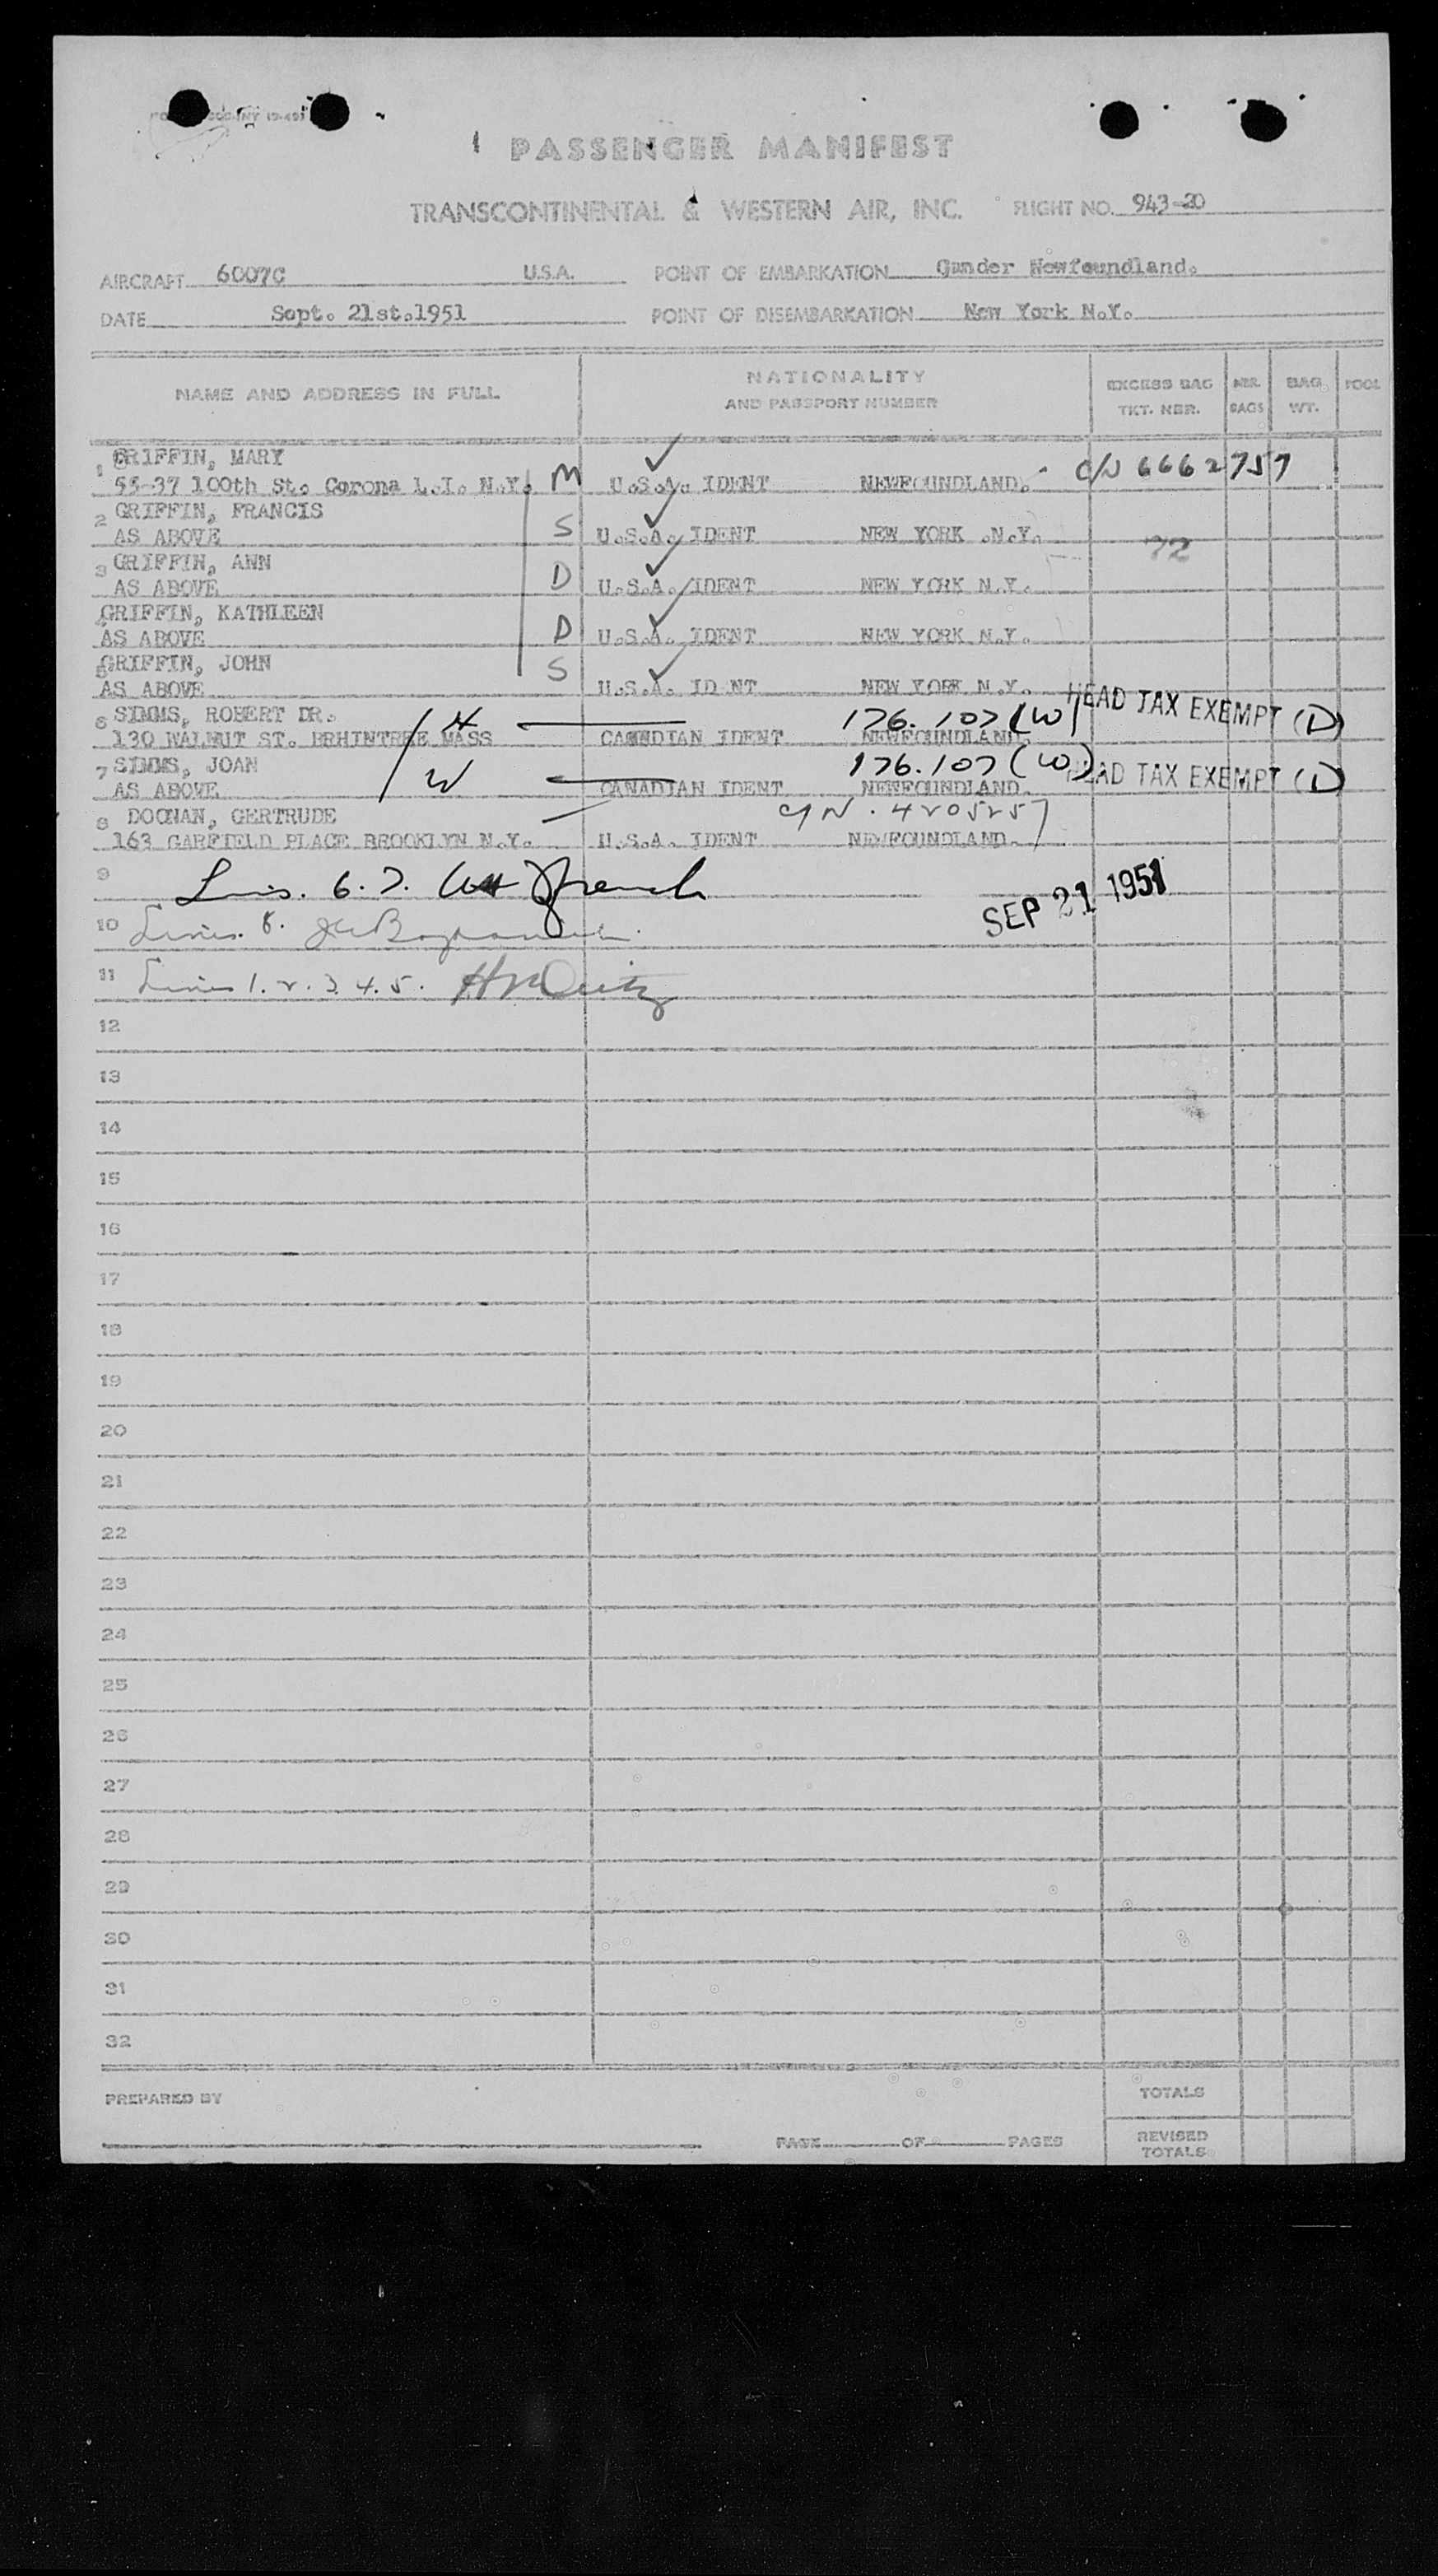 PASSENGER MANIFEST
TRANSCONTINENTAL & WESTERN AIR, INC. FLIGHT NO. 943-20
AIRCRAFT 6007C U.S.A. POINT OF EMBARKATION Gander Newfoundland.
DATE Sept. 21st.1951 POINT OF DISEMBARKATION New York N.Y.
NAME AND ADDRESS IN FULL NATIONALITY AND PASSPORT NUMBER EXCESS BAG TKT. NBR. NBR. BAGS BAG WT. POOL
1 GRIFFIN, MARY
55-37 100th St. Corona L.I. N.Y. M U.S.A. IDENT NEWFOUNDLAND. C/N 6662757
2 GRIFFIN, FRANCIS
AS ABOVE S U.S.A. IDENT NEW YORK .N.Y. 72
3 GRIFFIN, ANN
AS ABOVE D U.S.A. IDENT NEW YORK N.Y.
GRIFFIN, KATHLEEN
AS ABOVE D U.S.A. IDENT NEW YORK N.Y.
5 GRIFFIN, JOHN S
AS ABOVE U.S.A. ID NT NEW YORK N.Y.
6 SIMMS, ROBERT DR. H 176.107 (W) HEAD TAX EXEMPT (D)
130 WALNUT ST. BRHINTREE MASS CANADIAN IDENT NEWFOUNDLAND.
7 SIMMS, JOAN W 176.107 (W) HEAD TAX EXEMPT (D)
AS ABOVE CANADIAN IDENT NEWFOUNDLAND.
8 DOONAN, GERTRUDE C/N. 4205257
163 GARFIELD PLACE BROOKLYN N.Y. U.S.A. IDENT NEWFOUNDLAND.
9 Lines. 6.7. French
SEP 21 1951
10 Lines. 8.
11 Lines 1.2.3.4.5.
12
13
14
15
16
17
18
19
20
21
22
23
24
25
26
27
28
29
30
31
32
PREPARED BY TOTALS
PAGE OF PAGES REVISED TOTALS